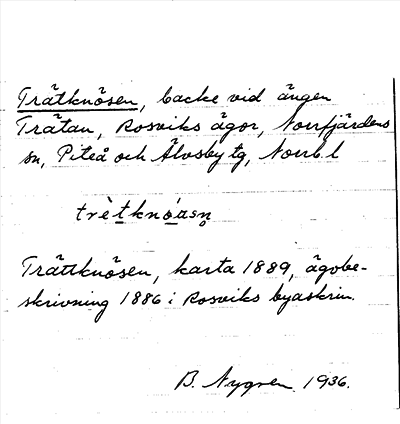 Trätknösen, backe vid ängen
Trätan, Rosviks ägor, Norrfjärdens
sn, Piteå och Älvsby tg, Norrb. l
trètknöasn̥
Trättknösen, karta 1889, ägobe-
skrivning 1886 i Rosviks byaskrin.
B. Nygren. 1936.